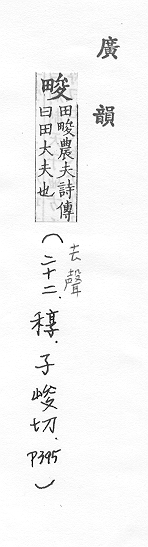 廣韻
畯
田畯農夫詩傳
曰田大夫也
(去聲
二十二.稕.子峻切.P395)